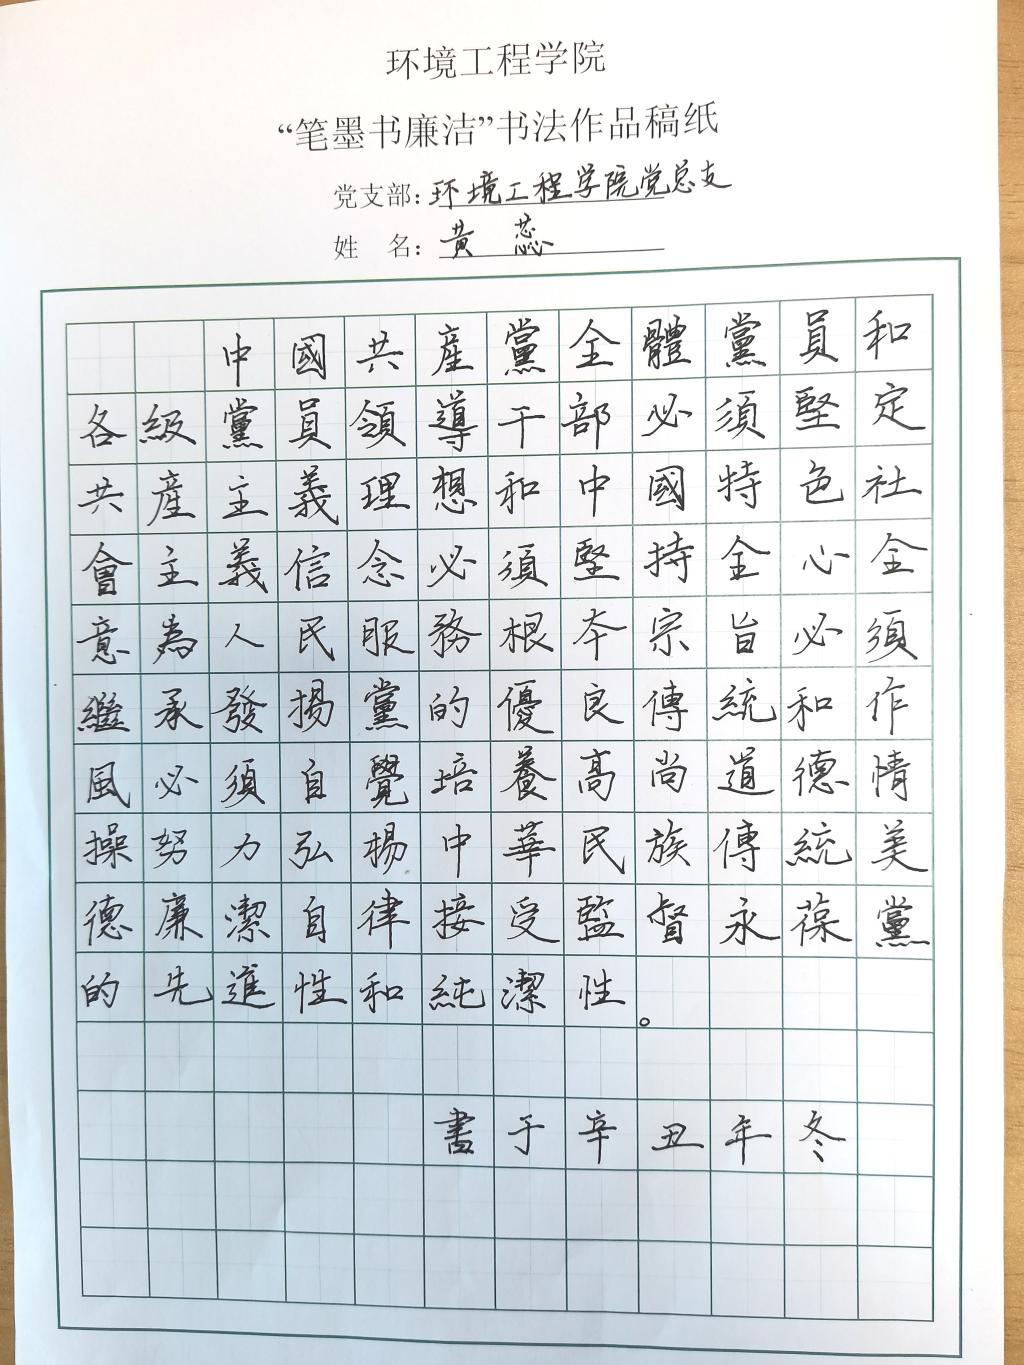 环境工程学院
“笔墨书廉洁”书法作品稿纸
党支部：环境工程学院党总支
姓 名：黄 蕊
中國共産黨全體黨員和
各級黨員領導干部必須堅定
共産主義理想和中國特色社
會主義信念必須堅持全心全
意為人民服務根本宗旨必須
繼承發揚黨的優良傳統和作
風必須自覺培養高尚道德情
操努力弘揚中華民族傳統美
德廉潔自律接受監督永葆黨
的先進性和純潔性。
書于辛丑年冬